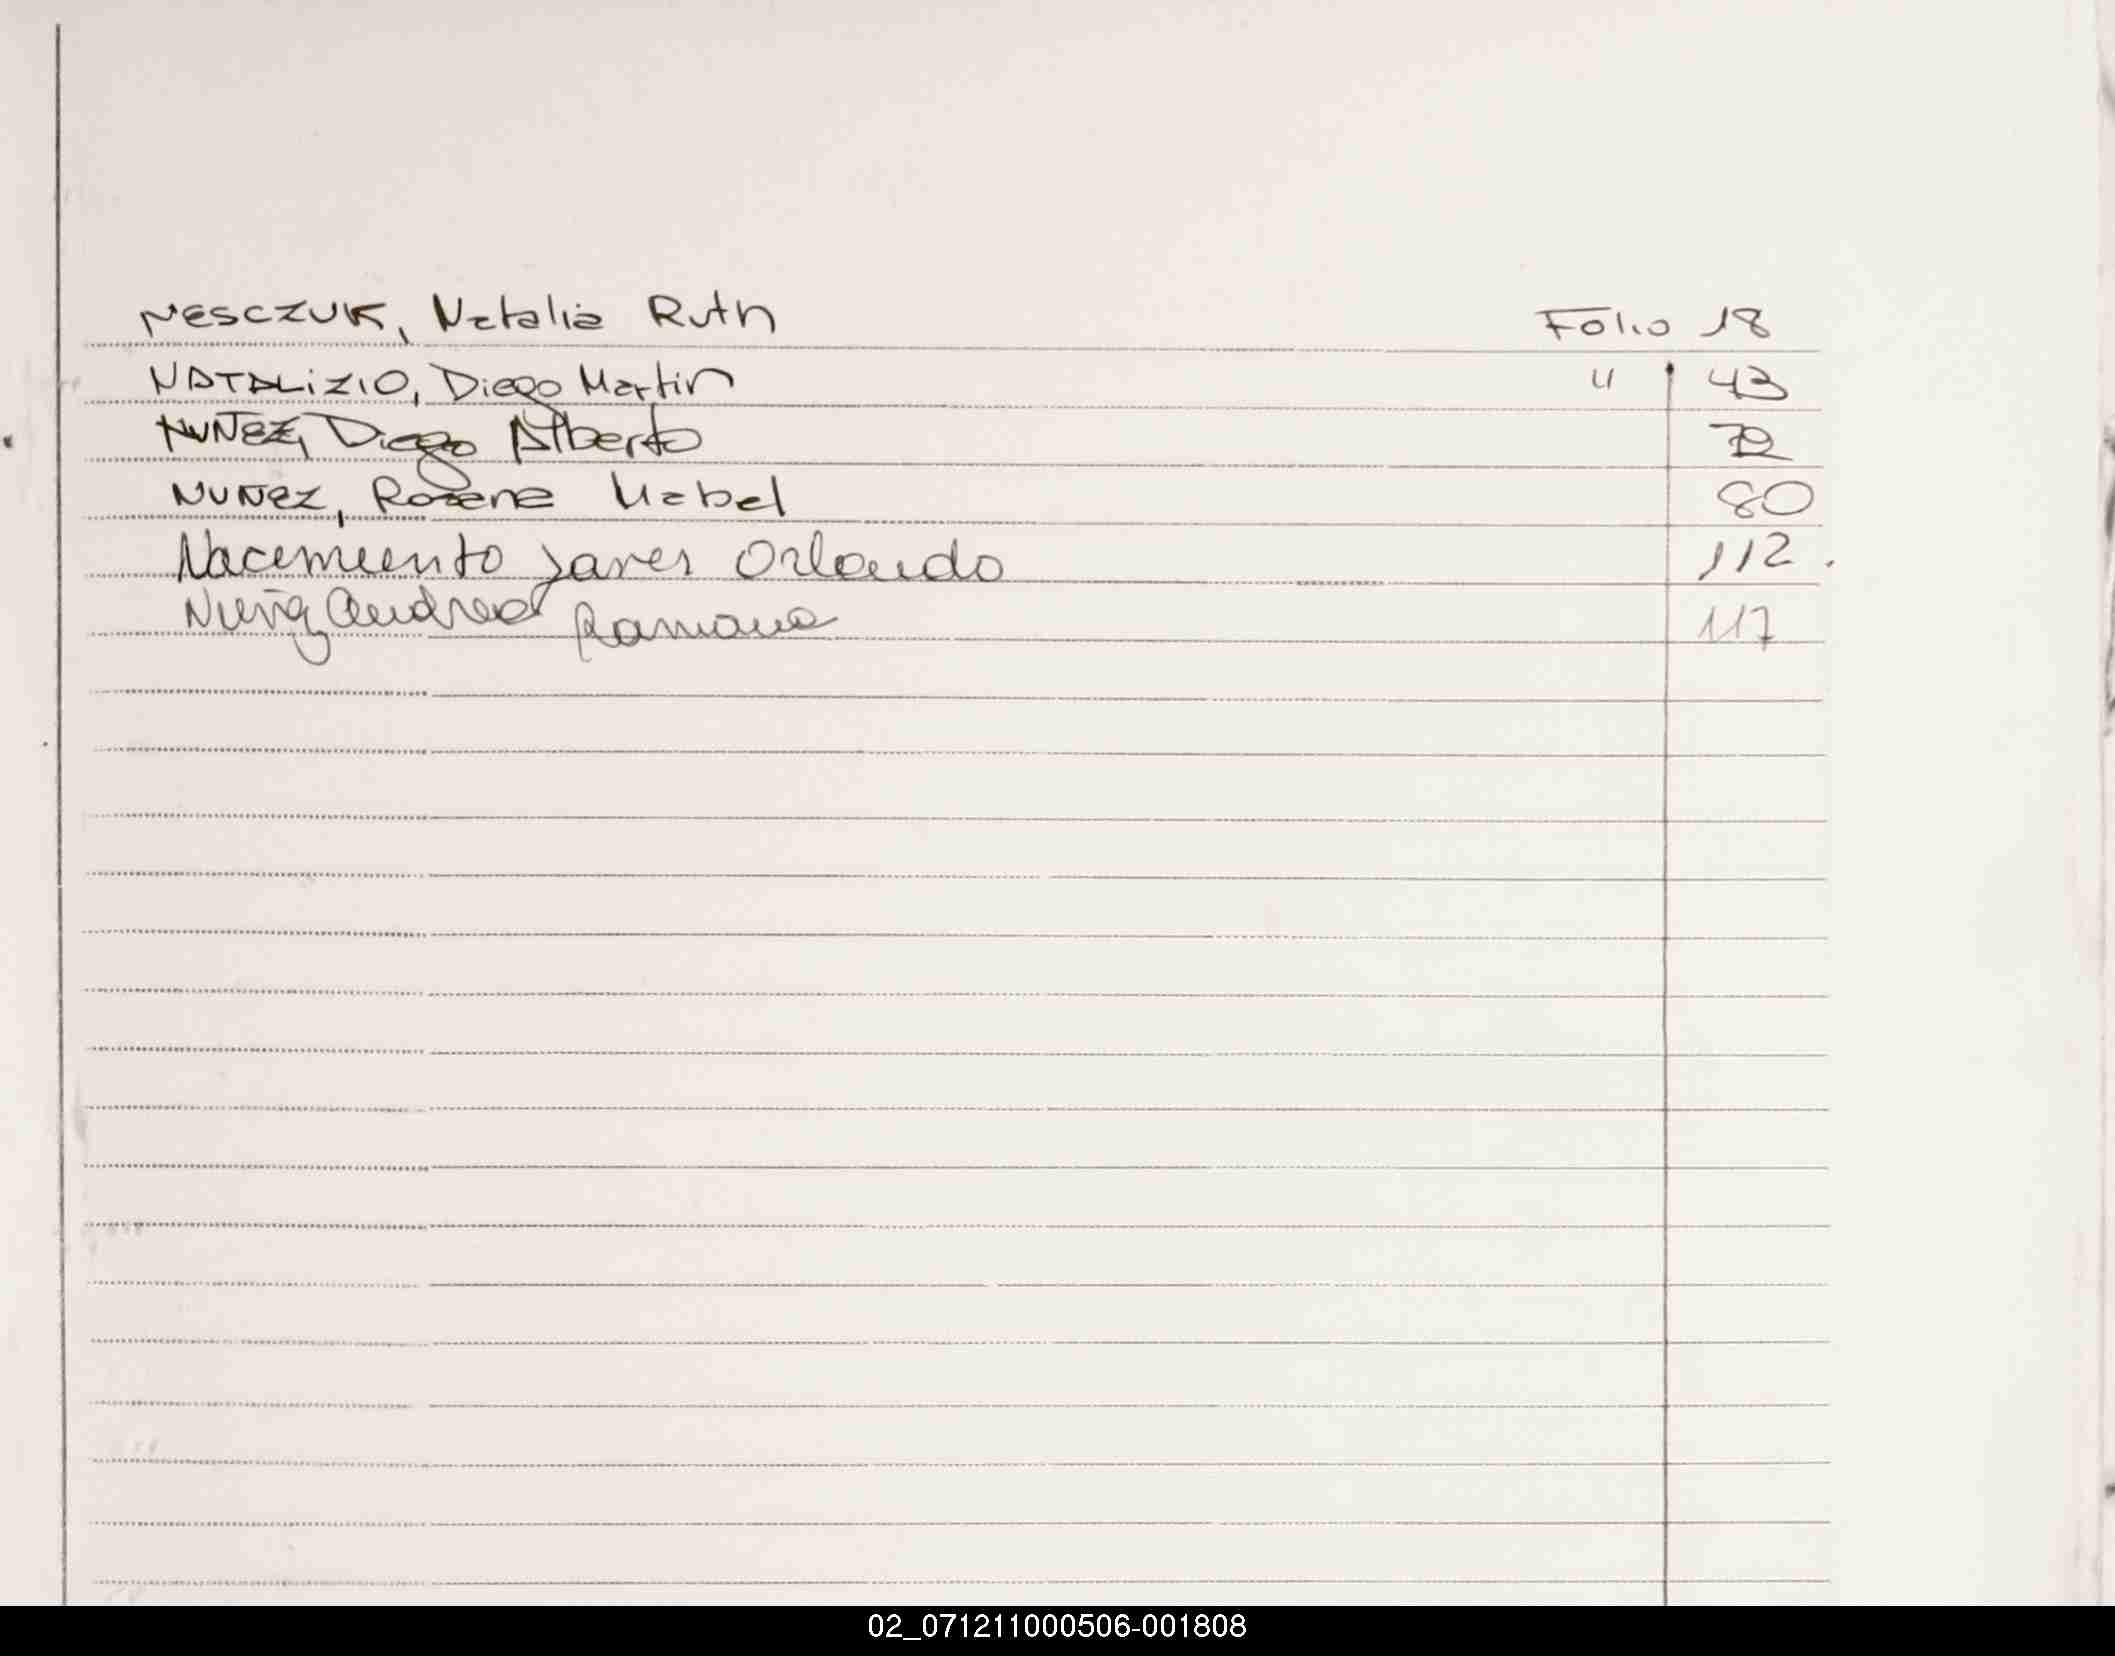 NESCZUK, Natalia Ruth Folio 18
NATALIZIO, Diego Martin " 43
NUÑEZ, Diego Alberto 72
NUÑEZ, Roxana Mabel 80
Nacemiento Javier Orlando 112.
Nuñez Andrea Ramona 117
02_071211000506-001808